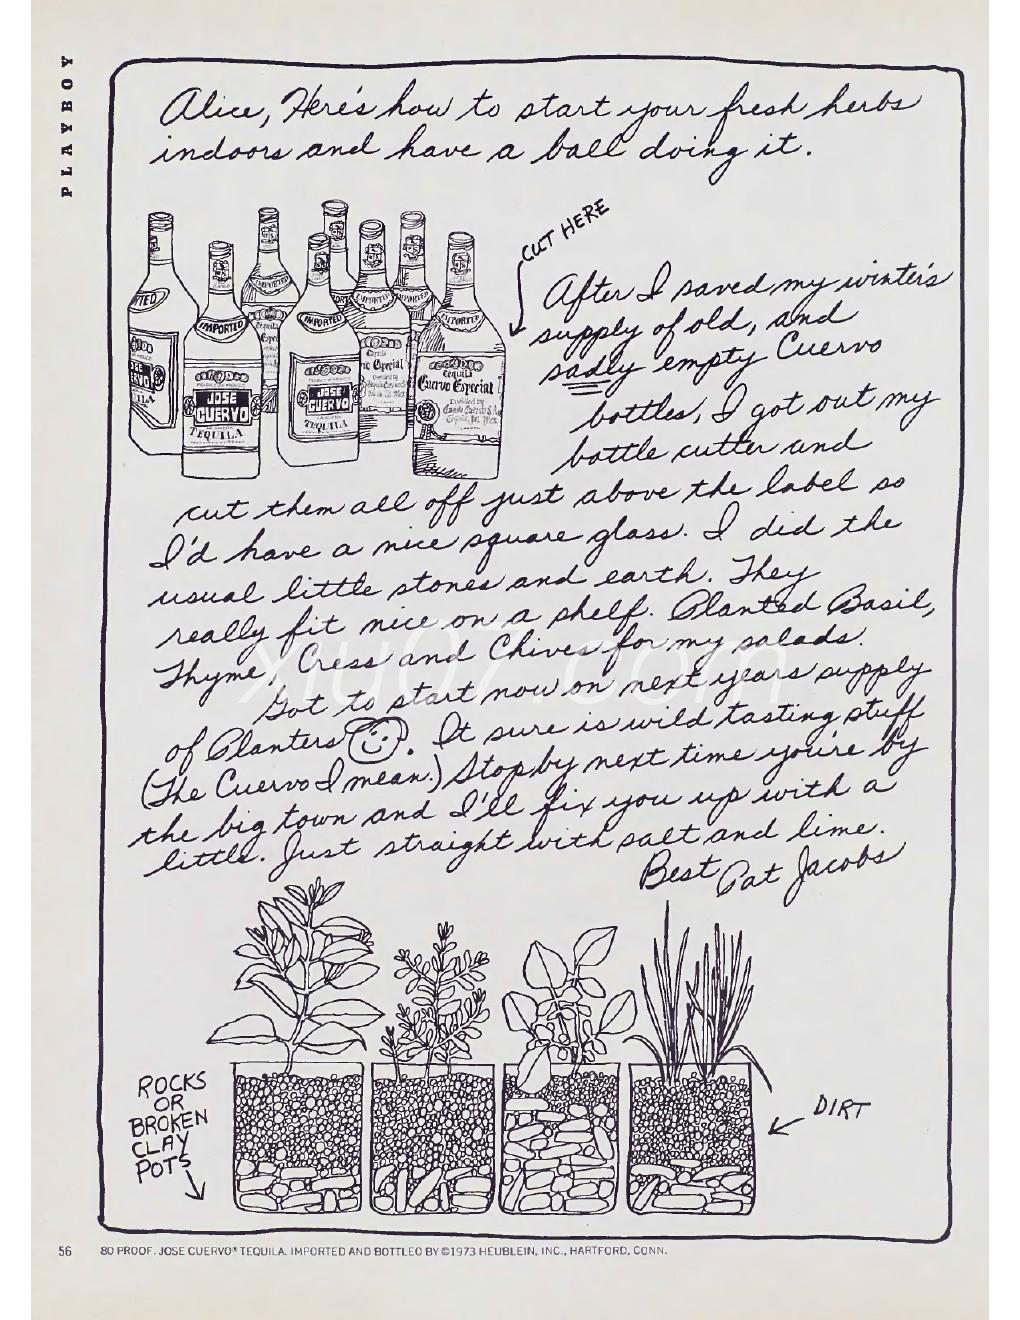 PLAYBOY
Alice, Here's how to start your fresh herbs
indoors and have a ball doing it.
CUT HERE
IMPORTED
IMPORTED
IMPORTED
IMPORTED
JOSE
CUERVO
TEQUILA
JOSE
CUERVO
TEQUILA
Tequila
Cuervo Especial
After I saved my winter's
supply of old, and
sadly empty Cuervo
bottles, I got out my
bottle cutter and
cut them all off just above the label so
I'd have a nice square glass. I did the
usual little stones and earth. They
really fit nice on a shelf. Planted Basil,
Thyme, Cress and Chives for my salads.
Got to start now on next years supply
of Planters. It sure is wild tasting stuff
(The Cuervo I mean.) Stop by next time you're by
the big town and I'll fix you up with a
little. Just straight with salt and lime.
Best Pat Jacobs
xiu07.com
ROCKS
OR
BROKEN
CLAY
POTS
DIRT
56 80 PROOF. JOSE CUERVO® TEQUILA. IMPORTED AND BOTTLED BY ©1973 HEUBLEIN, INC., HARTFORD, CONN.